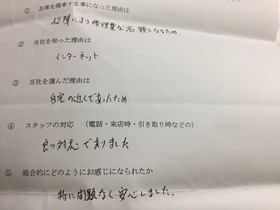 ① お車を廃車する事になった理由は
故障により修理費が高額となるため
② 当社を知った理由は
インターネット
③ 当社を選んだ理由は
自宅の近くであったため
④ スタッフの対応 （電話・来店時・引き取り時などの）
良い対応でありました
⑤ 総合的にどのようにお感じになられたか
特に問題なく安心しました。